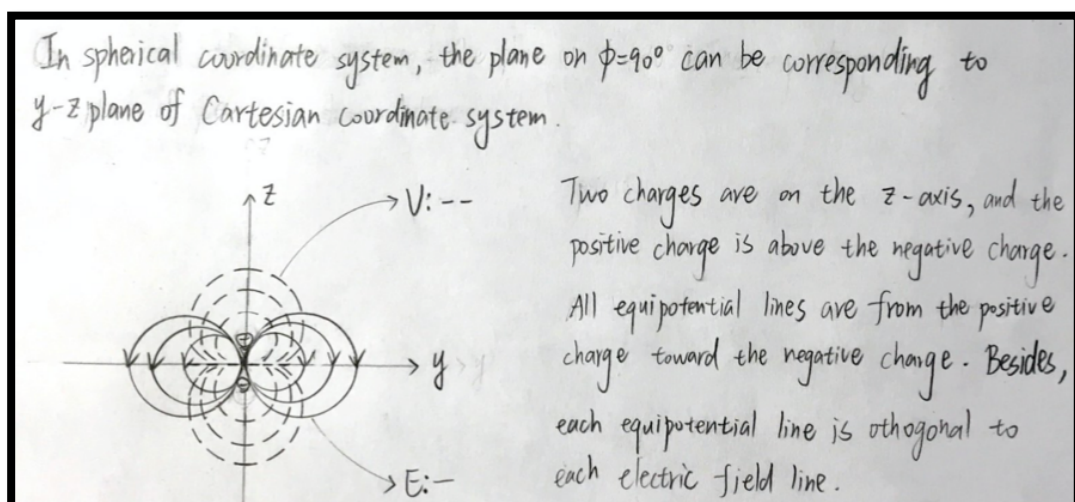 In spherical coordinate system, the plane on ϕ=90° can be corresponding to
y-z plane of Cartesian coordinate system.
z
V: --
y
E: —
Two charges are on the z-axis, and the
positive charge is above the negative charge.
All equipotential lines are from the positive
charge toward the negative charge. Besides,
each equipotential line is othogonal to
each electric field line.